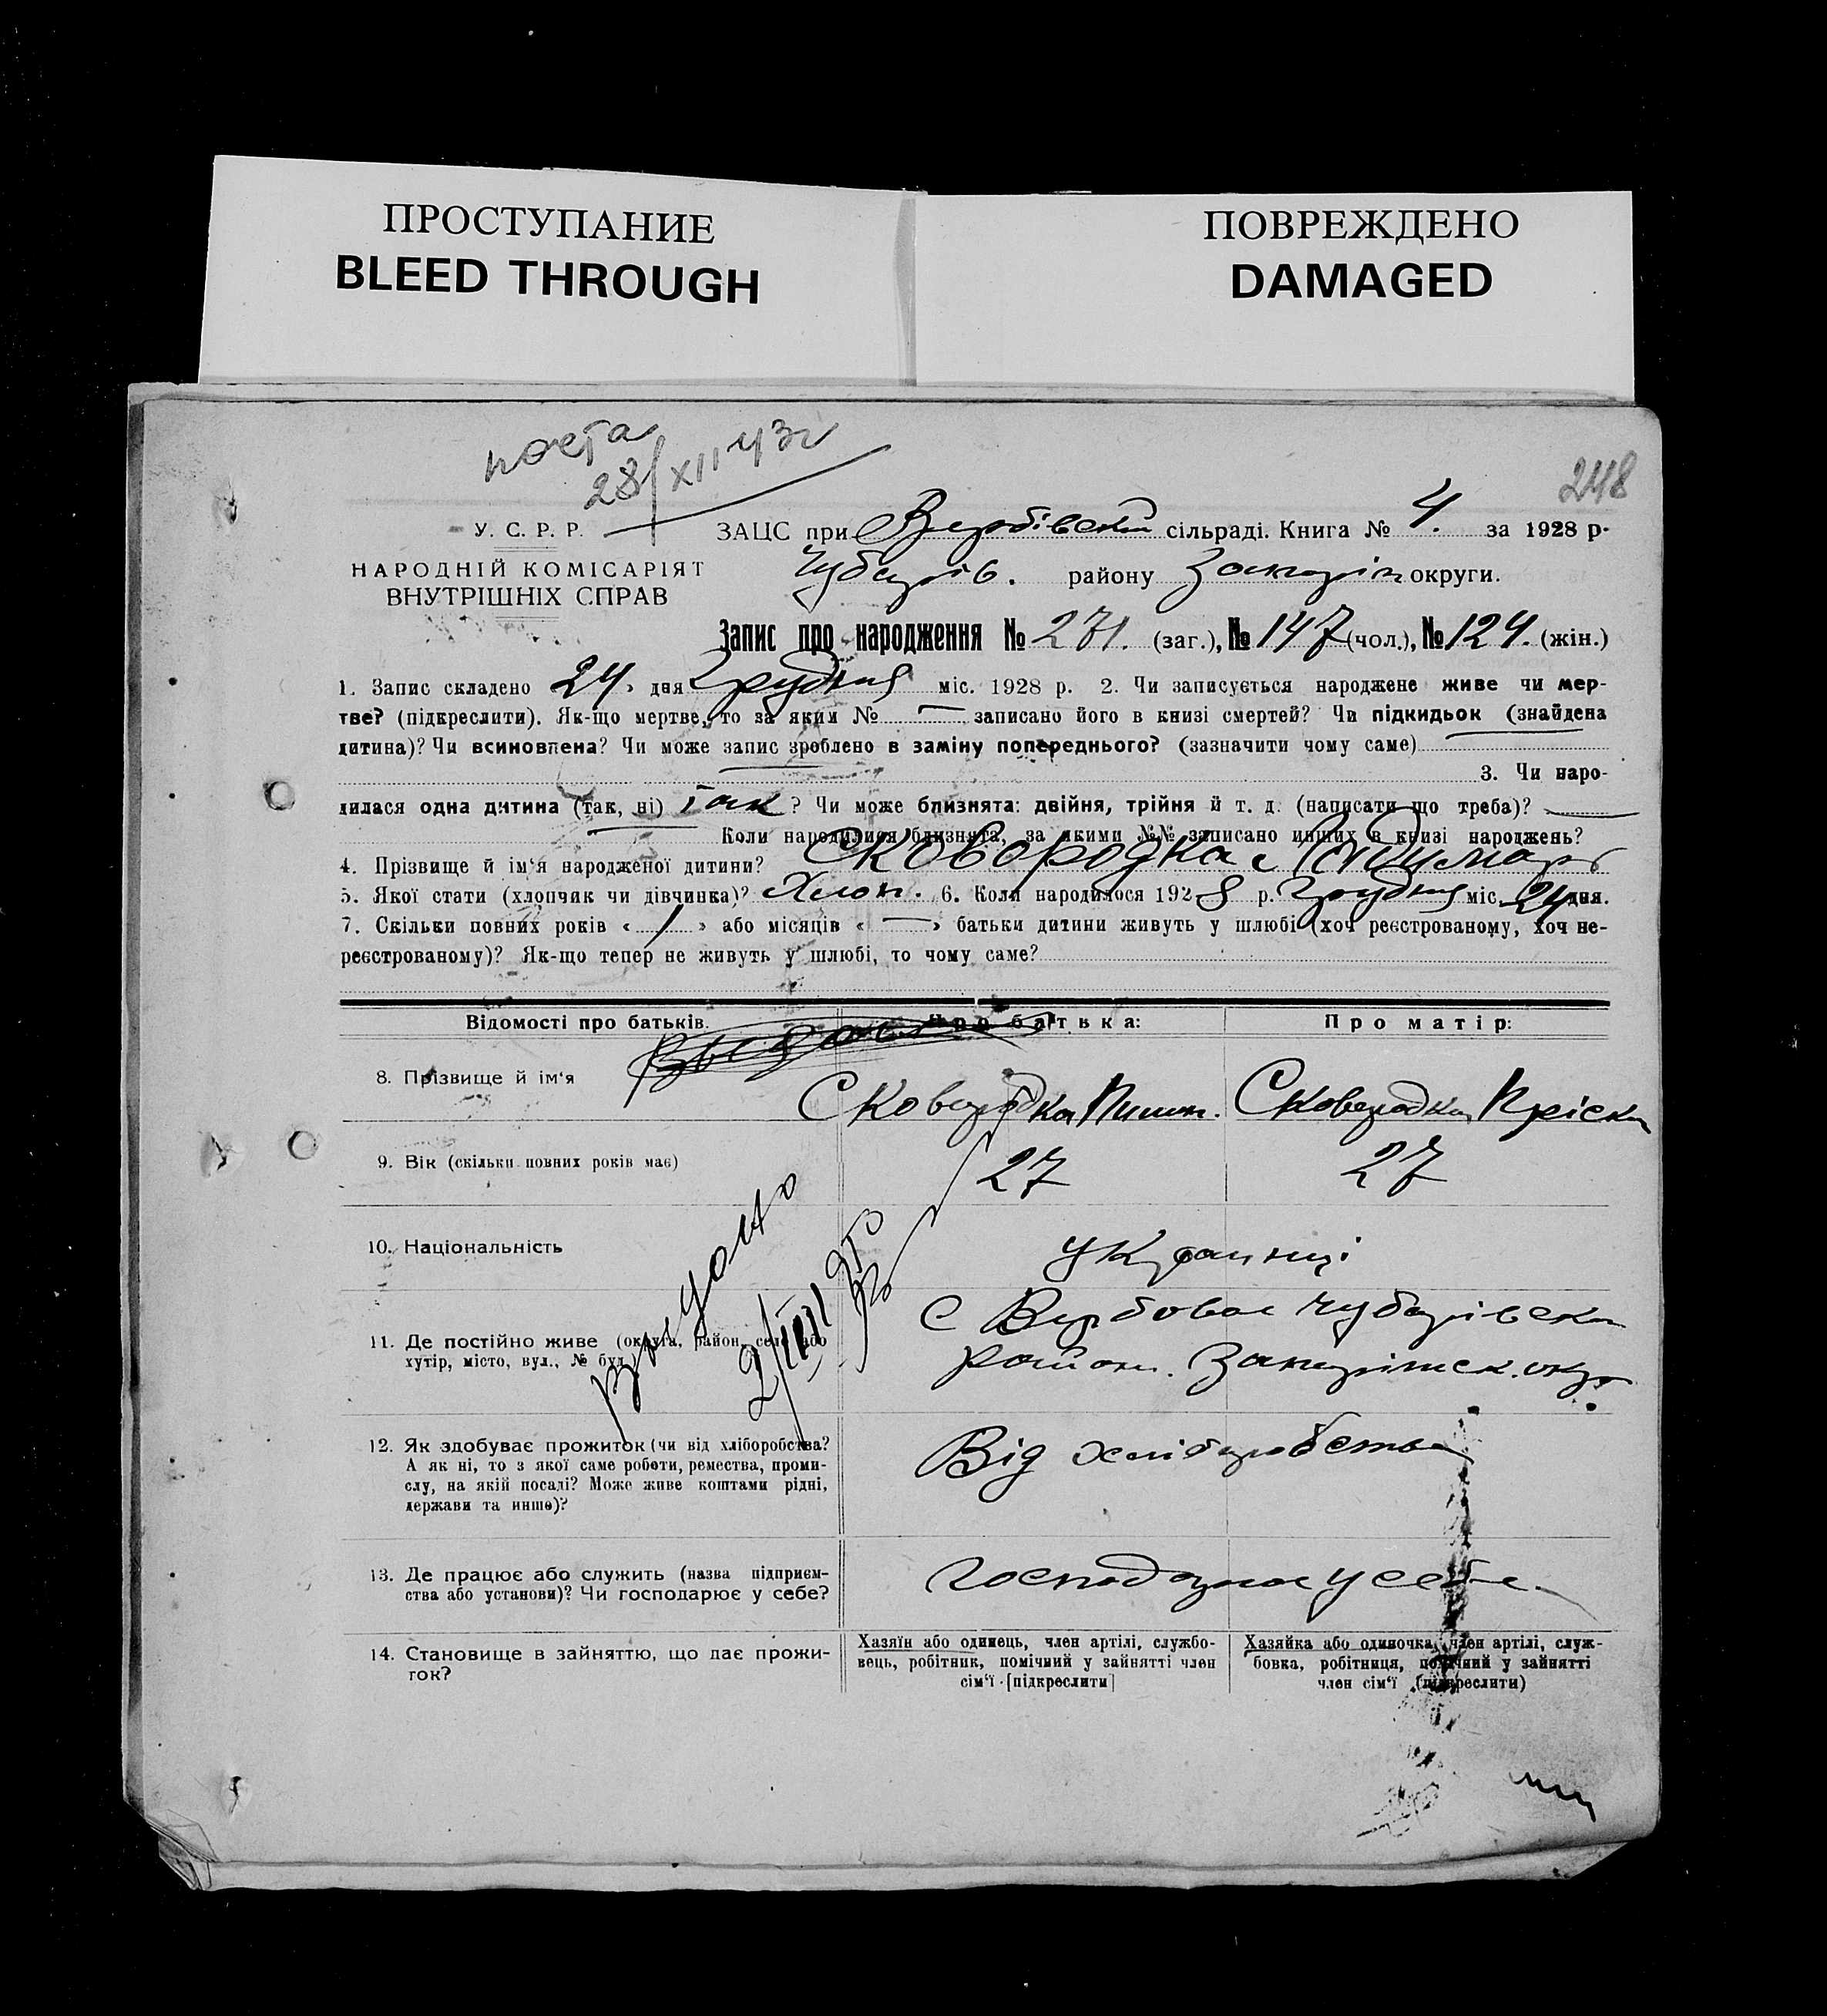 ПРОСТУПАНИЕ
BLEED THROUGH
ПОВРЕЖДЕНО
DAMAGED
28/XII 43г
248
У. С. Р. Р.
НАРОДНІЙ КОМІСАРІЯТ
ВНУТРІШНІХ СПРАВ
ЗАЦС при Вербівській сільраді. Книга № 4. за 1928 р.
Чубарів. району Запоріз округи.
Запис про народження № 271. (заг.), № 147 (чол.), № 124. (жін.)
1. Запис складено 24 дня Грудня міс. 1928 р. 2. Чи записується народжене живе чи мер-
тве? (підкреслити). Як-що мертве, то за яким № — записано його в книзі смертей? Чи підкидьок (знайдена
дитина)? Чи всиновлена? Чи може запис зроблено в заміну попереднього? (зазначити чому саме)
3. Чи наро-
дилася одна дитина (так, ні) так? Чи може близнята: двійня, трійня й т. д. (написати що треба)? —
Коли народилися близнята, за якими №№ записано инших в книзі народжень?
4. Прізвище й ім'я народженої дитини? Сковородка
5. Якої стати (хлопчик чи дівчинка)? Хлоп. 6. Коли народилося 1928 р. Грудня міс. 24 дня.
7. Скільки повних років « 1 » або місяців « — » батьки дитини живуть у шлюбі (хоч реєстрованому, хоч не-
реєстрованому)? Як-що тепер не живуть у шлюбі, то чому саме?
Відомості про батьків. Про батька: Про матір:
8. Прізвище й ім'я Сковородка Сковородка Пріська
9. Вік (скільки повних років має) 27 27
10. Національність українці
11. Де постійно живе (округа, район, село або
хутір, місто, вул., № буд.)
С Вербовое Чубарівськ
район. Запоріжск. окр.
Выдано
12. Як здобуває прожиток (чи від хліборобства?
А як ні, то з якої саме роботи, ремества, проми-
слу, на якій посаді? Може живе коштами рідні,
держави та инше)?
Від хліборобства
13. Де працює або служить (назва підприєм-
ства або установи)? Чи господарює у себе?
господарює у себе
14. Становище в зайняттю, що дає прожи-
ток?
Хазяїн або одинець, член артілі, службо-
вець, робітник, помічний у зайнятті член
сім'ї [підкреслити]
Хазяйка або одиночка, член артілі, служ-
бовка, робітниця, помічний у зайнятті
член сім'ї (підкреслити)